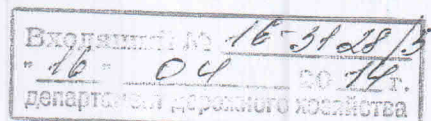 Входящий № 16-3128/5
"16" 04 2014 г.
департамент дорожного хозяйства